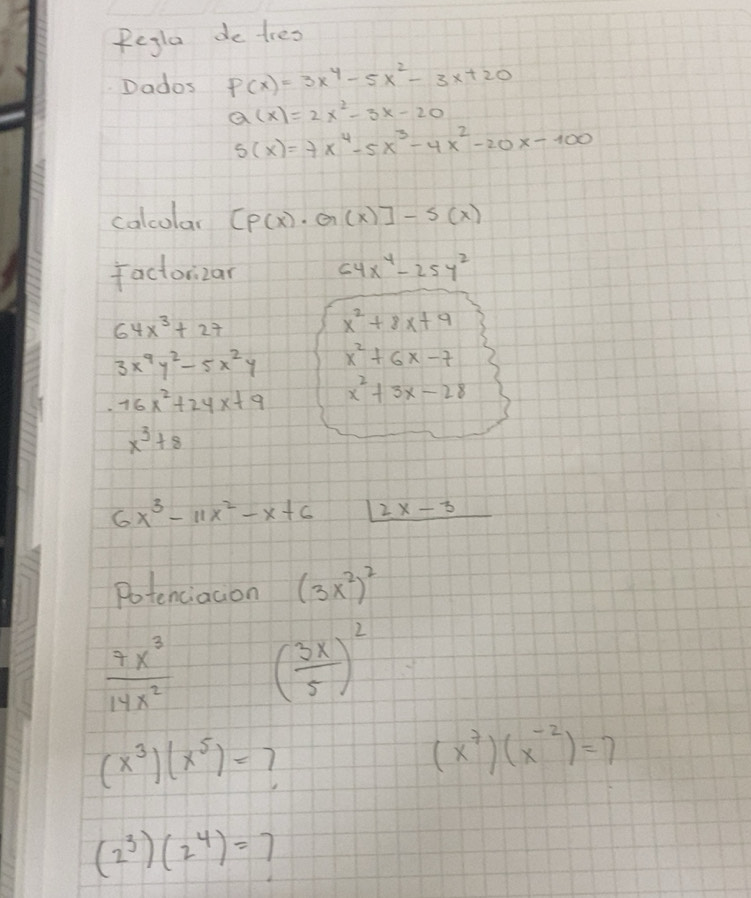 Regla de tres
Dados P(x) = 3x⁴ - 5x² - 3x + 20
Q(x) = 2x² - 3x - 20
S(x) = 7x⁴ - 5x³ - 4x² - 20x - 100
calcular [P(x) · Q(x)] - S(x)
Factorizar 64x⁴ - 25y²
64x³ + 27 x² + 8x + 9
3x⁴y² - 5x²y x² + 6x - 7
16x² + 24x + 9 x² + 3x - 28
x³ + 8
6x³ - 11x² - x + 6 |2x - 3
Potenciacion (3x²)²
7x³/14x² (3x/5)²
(x³)(x⁵) = ? (x⁷)(x⁻²) = ?
(2³)(2⁴) = ?